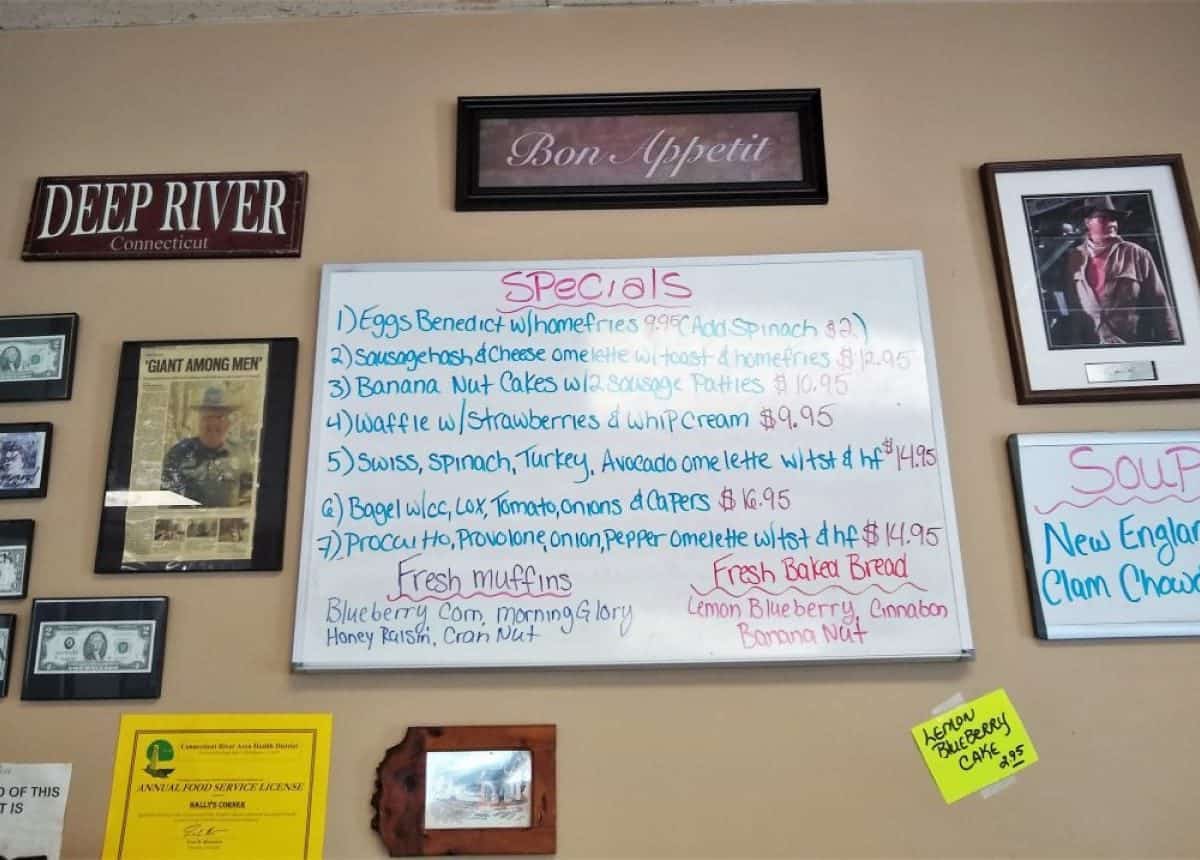 Bon Appetit
DEEP RIVER
Connecticut
'GIANT AMONG MEN'
SPecials
1) Eggs Benedict w/homefries 9.95 (Add Spinach $2.)
2) Sausage hash & Cheese omelette w/ toast & homefries $12.95
3) Banana Nut Cakes w/2 Sausage Patties $10.95
4) Waffle w/Strawberries & Whip Cream $9.95
5) Swiss, Spinach, Turkey, Avocado omelette w/tst & hf $14.95
6) Bagel w/cc, Lox, Tomato, onions & Capers $16.95
7) Procuitto, Provolone, onion, Pepper omelette w/tst & hf $14.95
Fresh muffins
Blueberry, Corn, morning Glory
Honey Raisin, Cran Nut
Fresh Baked Bread
Lemon Blueberry, Cinnabon
Banana Nut
Soup
New Englan
Clam Chow
LEMON
BLUEBERRY
CAKE
2.95
Connecticut River Area Health District
ANNUAL FOOD SERVICE LICENSE
HALLY'S CORNER
D OF THIS
T IS